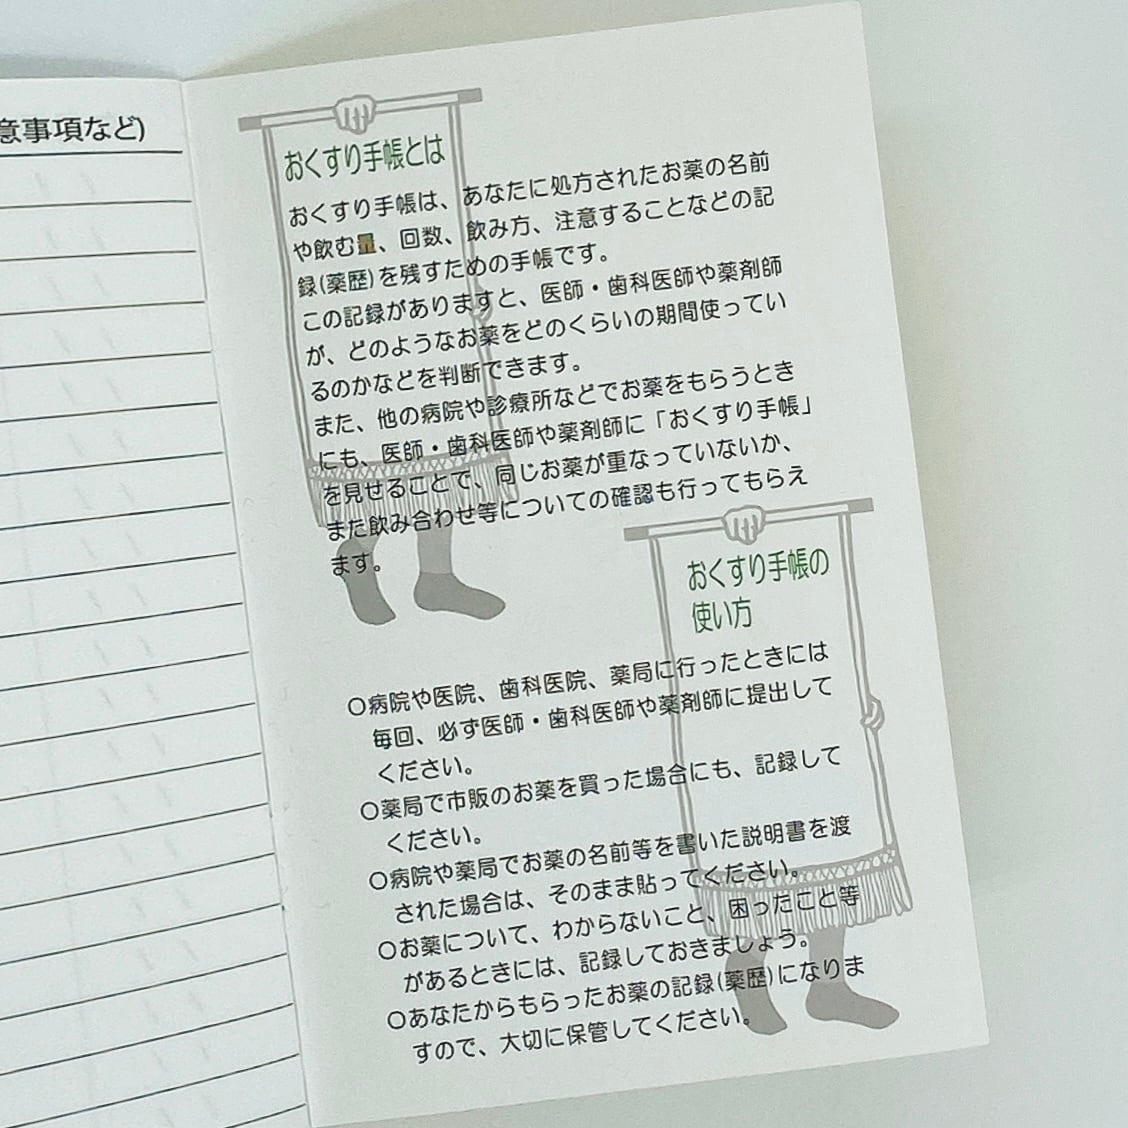 意事項など)
おくすり手帳とは
おくすり手帳は、あなたに処方されたお薬の名前
や飲む量、回数、飲み方、注意することなどの記
録(薬歴)を残すための手帳です。
この記録がありますと、医師・歯科医師や薬剤師
が、どのようなお薬をどのくらいの期間使ってい
るのかなどを判断できます。
また、他の病院や診療所などでお薬をもらうとき
にも、医師・歯科医師や薬剤師に「おくすり手帳」
を見せることで、同じお薬が重なっていないか、
また飲み合わせ等についての確認も行ってもらえ
ます。
おくすり手帳の
使い方
○病院や医院、歯科医院、薬局に行ったときには
毎回、必ず医師・歯科医師や薬剤師に提出して
ください。
○薬局で市販のお薬を買った場合にも、記録して
ください。
○病院や薬局でお薬の名前等を書いた説明書を渡
された場合は、そのまま貼ってください。
○お薬について、わからないこと、困ったこと等
があるときには、記録しておきましょう。
○あなたからもらったお薬の記録(薬歴)になりま
すので、大切に保管してください。